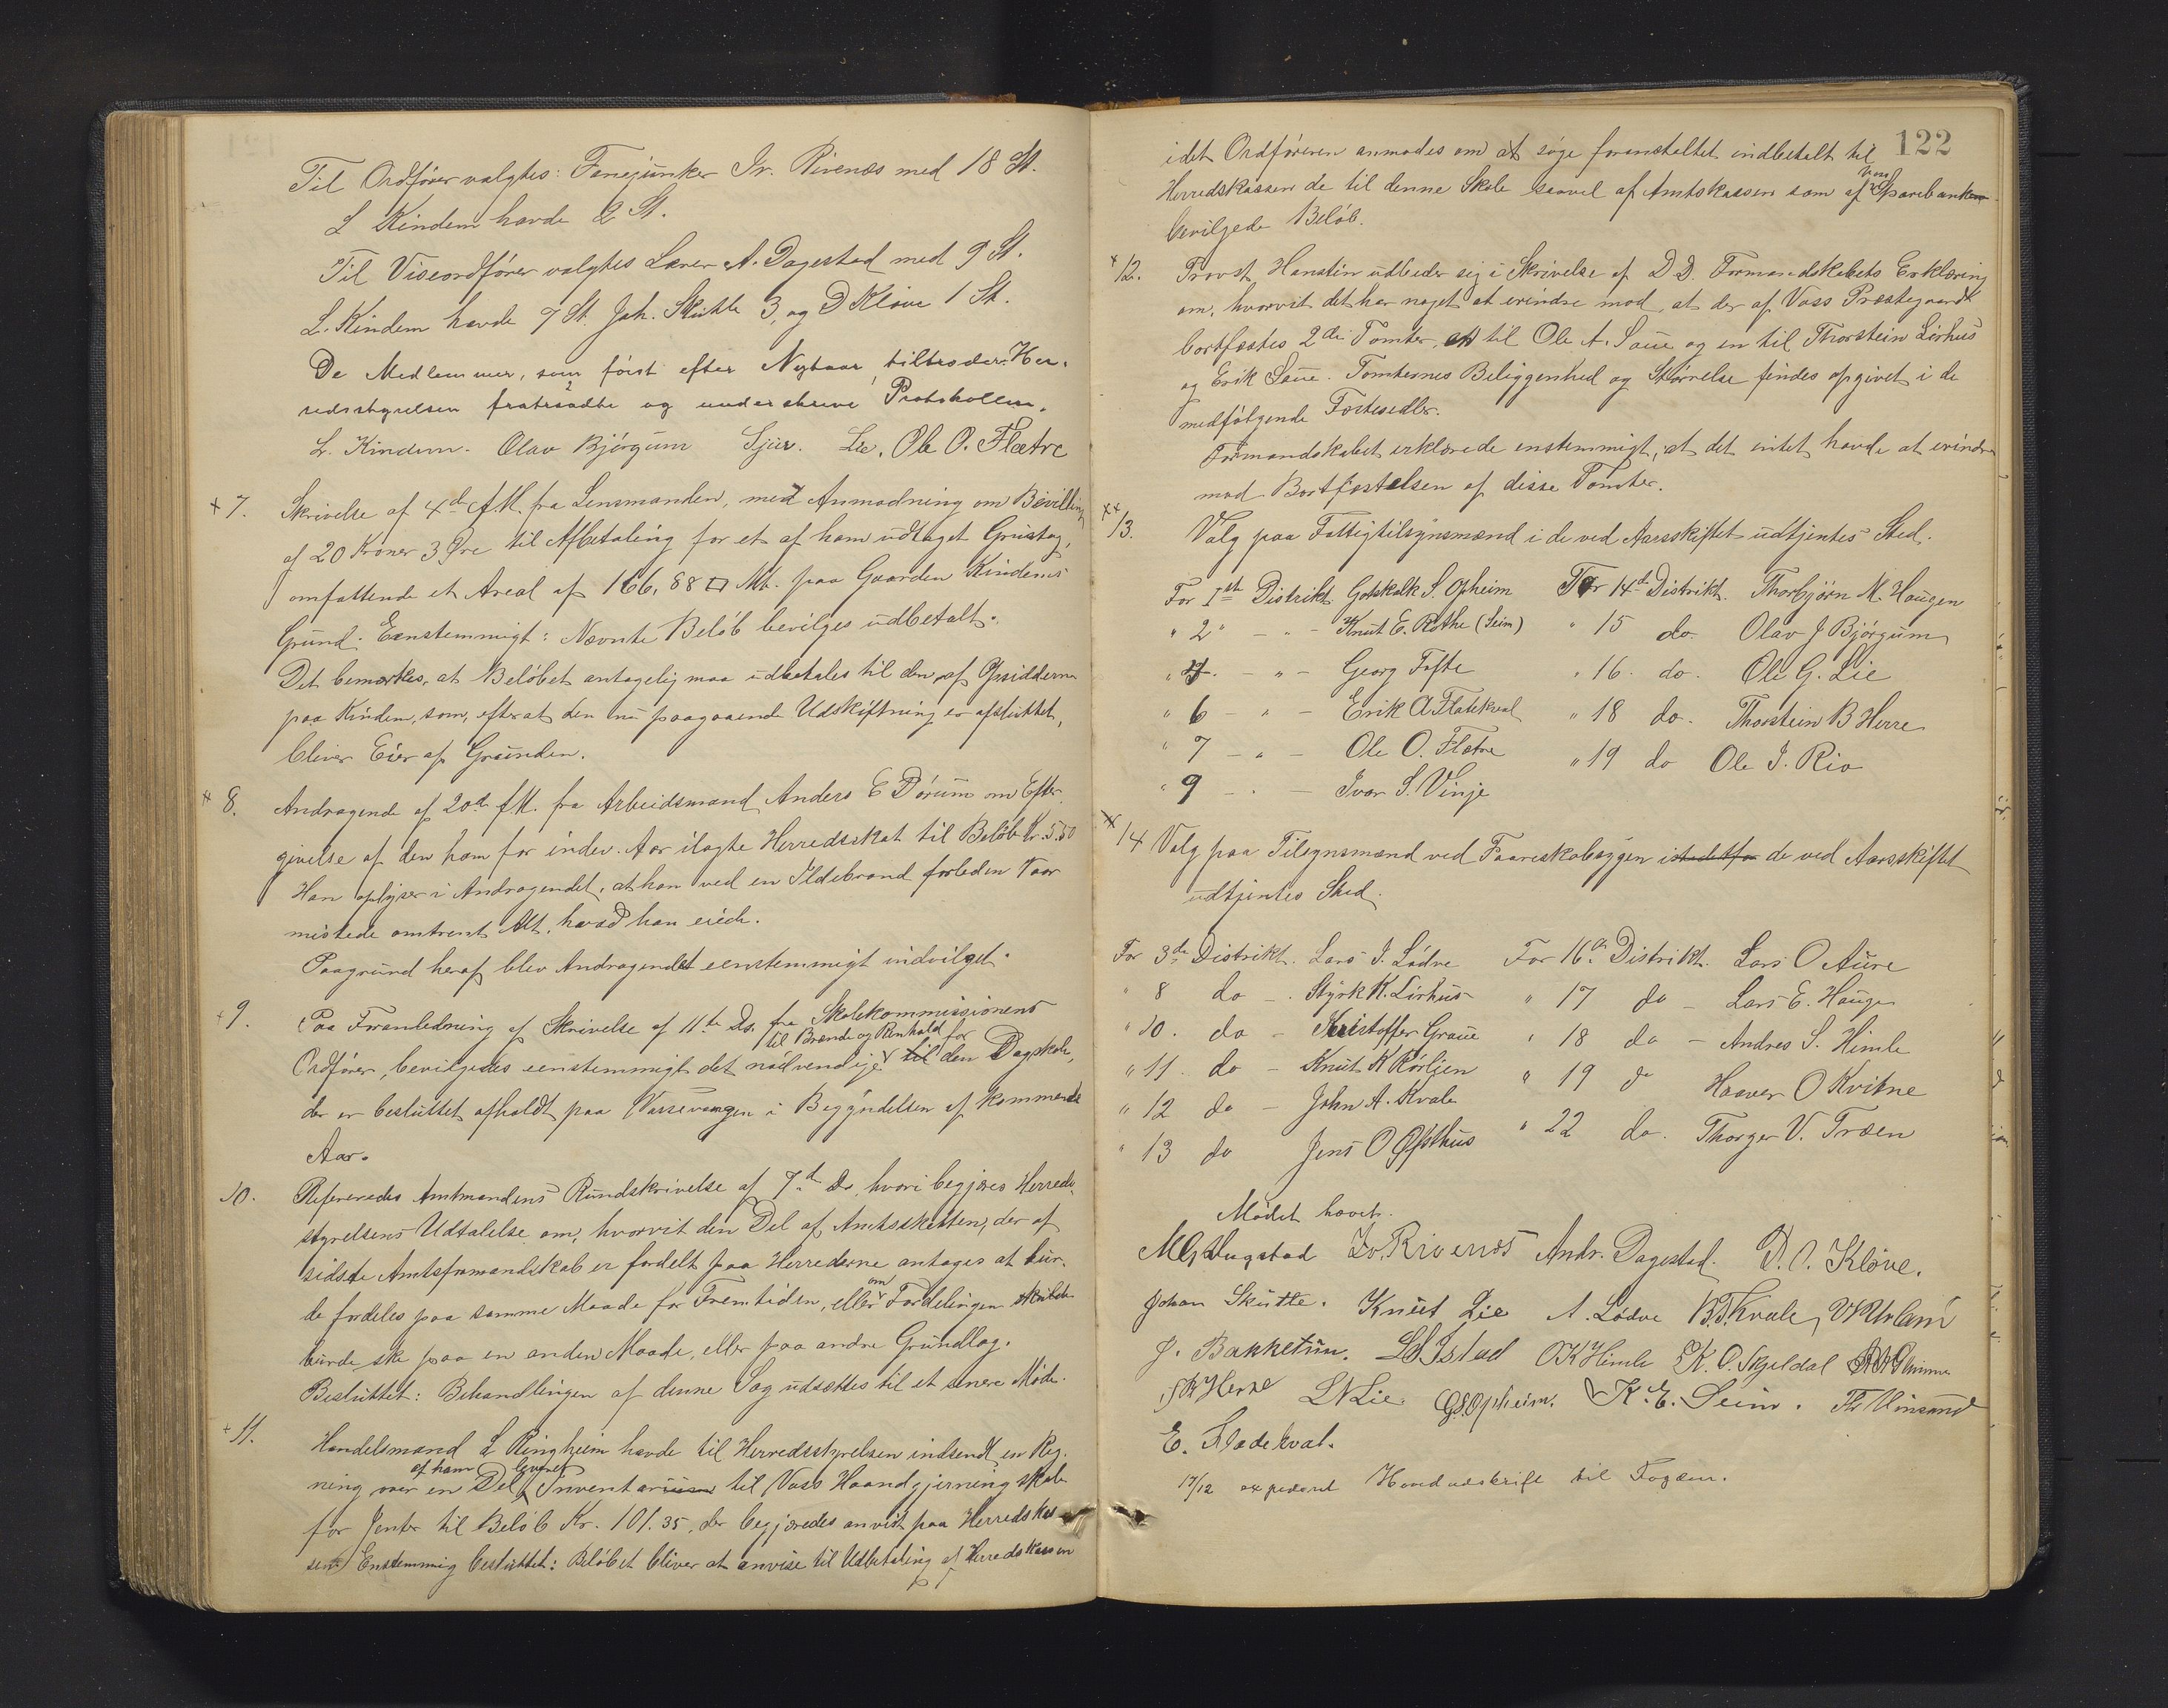 Til Ordfører valgtes: Fanejunker Iv. Rivenæs med 18 St.
L Kindem havde 2 St.
Til Viseordfører valgtes Lærer A. Dagestad med 9 St.
L. Kindem havde 7 St. Joh. Skutle 3, og D Kløve 1 St.
De Medlemmer, som først efter Nytaar tiltræder Her-
redsstyrelsen fratraadte og underskreve Protokollen.
L. Kindem. Olav Bjørgum Sjur. Lie. Ole O. Flætre
+ 7. Skrivelse af 4de f.M. fra Lensmanden, med Anmodning om Bevilling
af 20 Kroner 3 Øre til Afbetaling for et af ham udtaget Grustag,
omfattende et Areal af 166,88 □ Mt. paa Gaarden Kindems
Grund. Eenstemmigt: Nævnte Beløb bevilges udbetalt.
Det bemærkes, at Beløbet antagelig maa udbetales til den af Opsidderne
paa Kindem, som, efterat den nu paagaaende Udskiftning er afsluttet,
bliver Eier af Grunden.
+ 8. Andragende af 20de f.M. fra Arbeidsmand Anders E Dørum om Efter-
givelse af den ham for indev. Aar ilagte Herredsskat til Beløb Kr. 5.50
Han oplyser i Andragendet, at han ved en Ildebrand forleden Vaar
mistede omtrent Alt, hvad han eiede.
Paagrund heraf blev Andragendet eenstemmigt indvilget.
+ 9. Paa Foranledning af Skrivelse af 11te Ds. fra Skolekommissionens
til Brænde og Renhold for
Ordfører, bevilgedes eenstemmigt det nødvendige til den Dagskole,
der er besluttet afholdt paa Vossevangen i Begyndelsen af kommende
Aar.
10. Refereredes Amtmandens Rundskrivelse af 7de Ds, hvori begjæres Herreds-
styrelsens Udtalelse om, hvorvit den Del af Amtsskatten, der af
sidste Amtsformandskab er fordelt paa Herrederne antages at bur-
de fordeles paa samme Maade for Fremtiden, eller om Fordelingen
burde ske paa en anden Maade, eller paa andre Grundlag.
Besluttet: Behandlingen af denne Sag udsættes til et senere Møde.
+ 11. Handelsmand L Ringheim havde til Herredsstyrelsen indsendt en Reg-
af ham leveret
ning over en Del Inventarium til Voss Haandgjerningsskole
for Jenter til Beløb Kr. 101.35, der begjæredes anvist paa Herredskas-
sen. Enstemmig besluttet: Beløbet bliver at anvise til Udbetaling af Herredskassen
122
idet Ordføreren anmodes om at søge foranstaltet indbetalt til
Voss
Herredskassen de til denne Skole saavel af Amtskassen som af Sparebanken
bevilgede Beløb.
+ 12. Provst Hanstin udbeder sig i Skrivelse af D.D. Formandskabets Erklæring
om, hvorvit det har noget at erindre mod, at der af Voss Præstegaard
bortfæstes 2de Tomter, en til Ole A. Saue og en til Thorstein Lirhus
og Erik Saue. Tomternes Beliggenhed og Størrelse findes opgivet i de
medfølgende Festesedler.
Formandskabet erklærede enstemmigt, at det intet havde at erindre
mod Bortfæstelsen af disse Tomter.
++ 13. Valg paa Fattigtilsynsmænd i de ved Aarsskiftet udtjentes Sted.
For 1ste Distrikt Gotskalk S. Opheim For 14de Distrikt. Thorbjørn M. Haugen
" 2 " - " - Knut E. Rothe (Seim) " 15 do. Olav J Bjørgum
" 4 - " - Georg Tofte " 16. do. Ole G. Lie
" 6 - " - Erik A Flatekval " 18 do. Thorstein B Herre
" 7 - " - Ole O. Flætre " 19 do Ole I. Rio
" 9 - " - Ivar S. Vinje
+ 14 Valg paa Tilsynsmænd ved Faareskabsygen istedetfor de ved Aarsskiftet
udtjentes Sted.
For 3de Distrikt. Lars I. Lødve For 16de Distrikt. Lars O Aure
" 8 do - Styrk K. Lirhus " 17 do - Lars E. Hauge
" 10. do - Kristoffer Graue " 18 do - Andres S. Himle
" 11. do - Knut K Rørlien " 19 do Haaver O Kvitne
" 12 do - John A. Kvale " 22 do. Thorger V. Træen
" 13 do Jens O Øfsthus
Mødet hævet.
M G Hugstad Iv. Rivenæs Andr. Dagestad. D. O. Kløve.
Johan Skutle. Knut Lie A. Lødve B.T. Kvale,
J. Bakketun. LB Istad OK Himle K. O. Skjeldal
LN Lie G.S. Opheim. K. E. Seim. Th Vinsand
E. Fladekval.
17/12 expederet Hovedudskrift til Fogden.